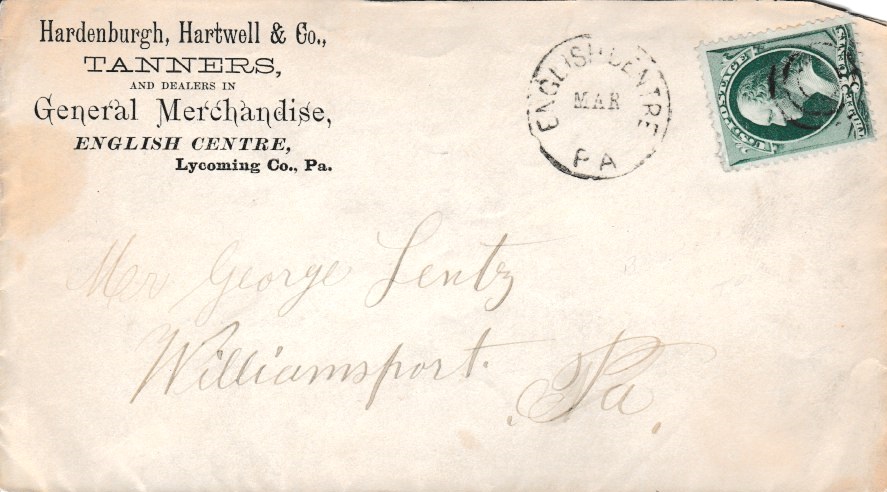 Hardenburgh, Hartwell & Co.,
TANNERS,
AND DEALERS IN
General Merchandise,
ENGLISH CENTRE,
Lycoming Co., Pa.
ENGLISH CENTRE
MAR
PA
Mr George Lentz
Williamsport.
Pa.